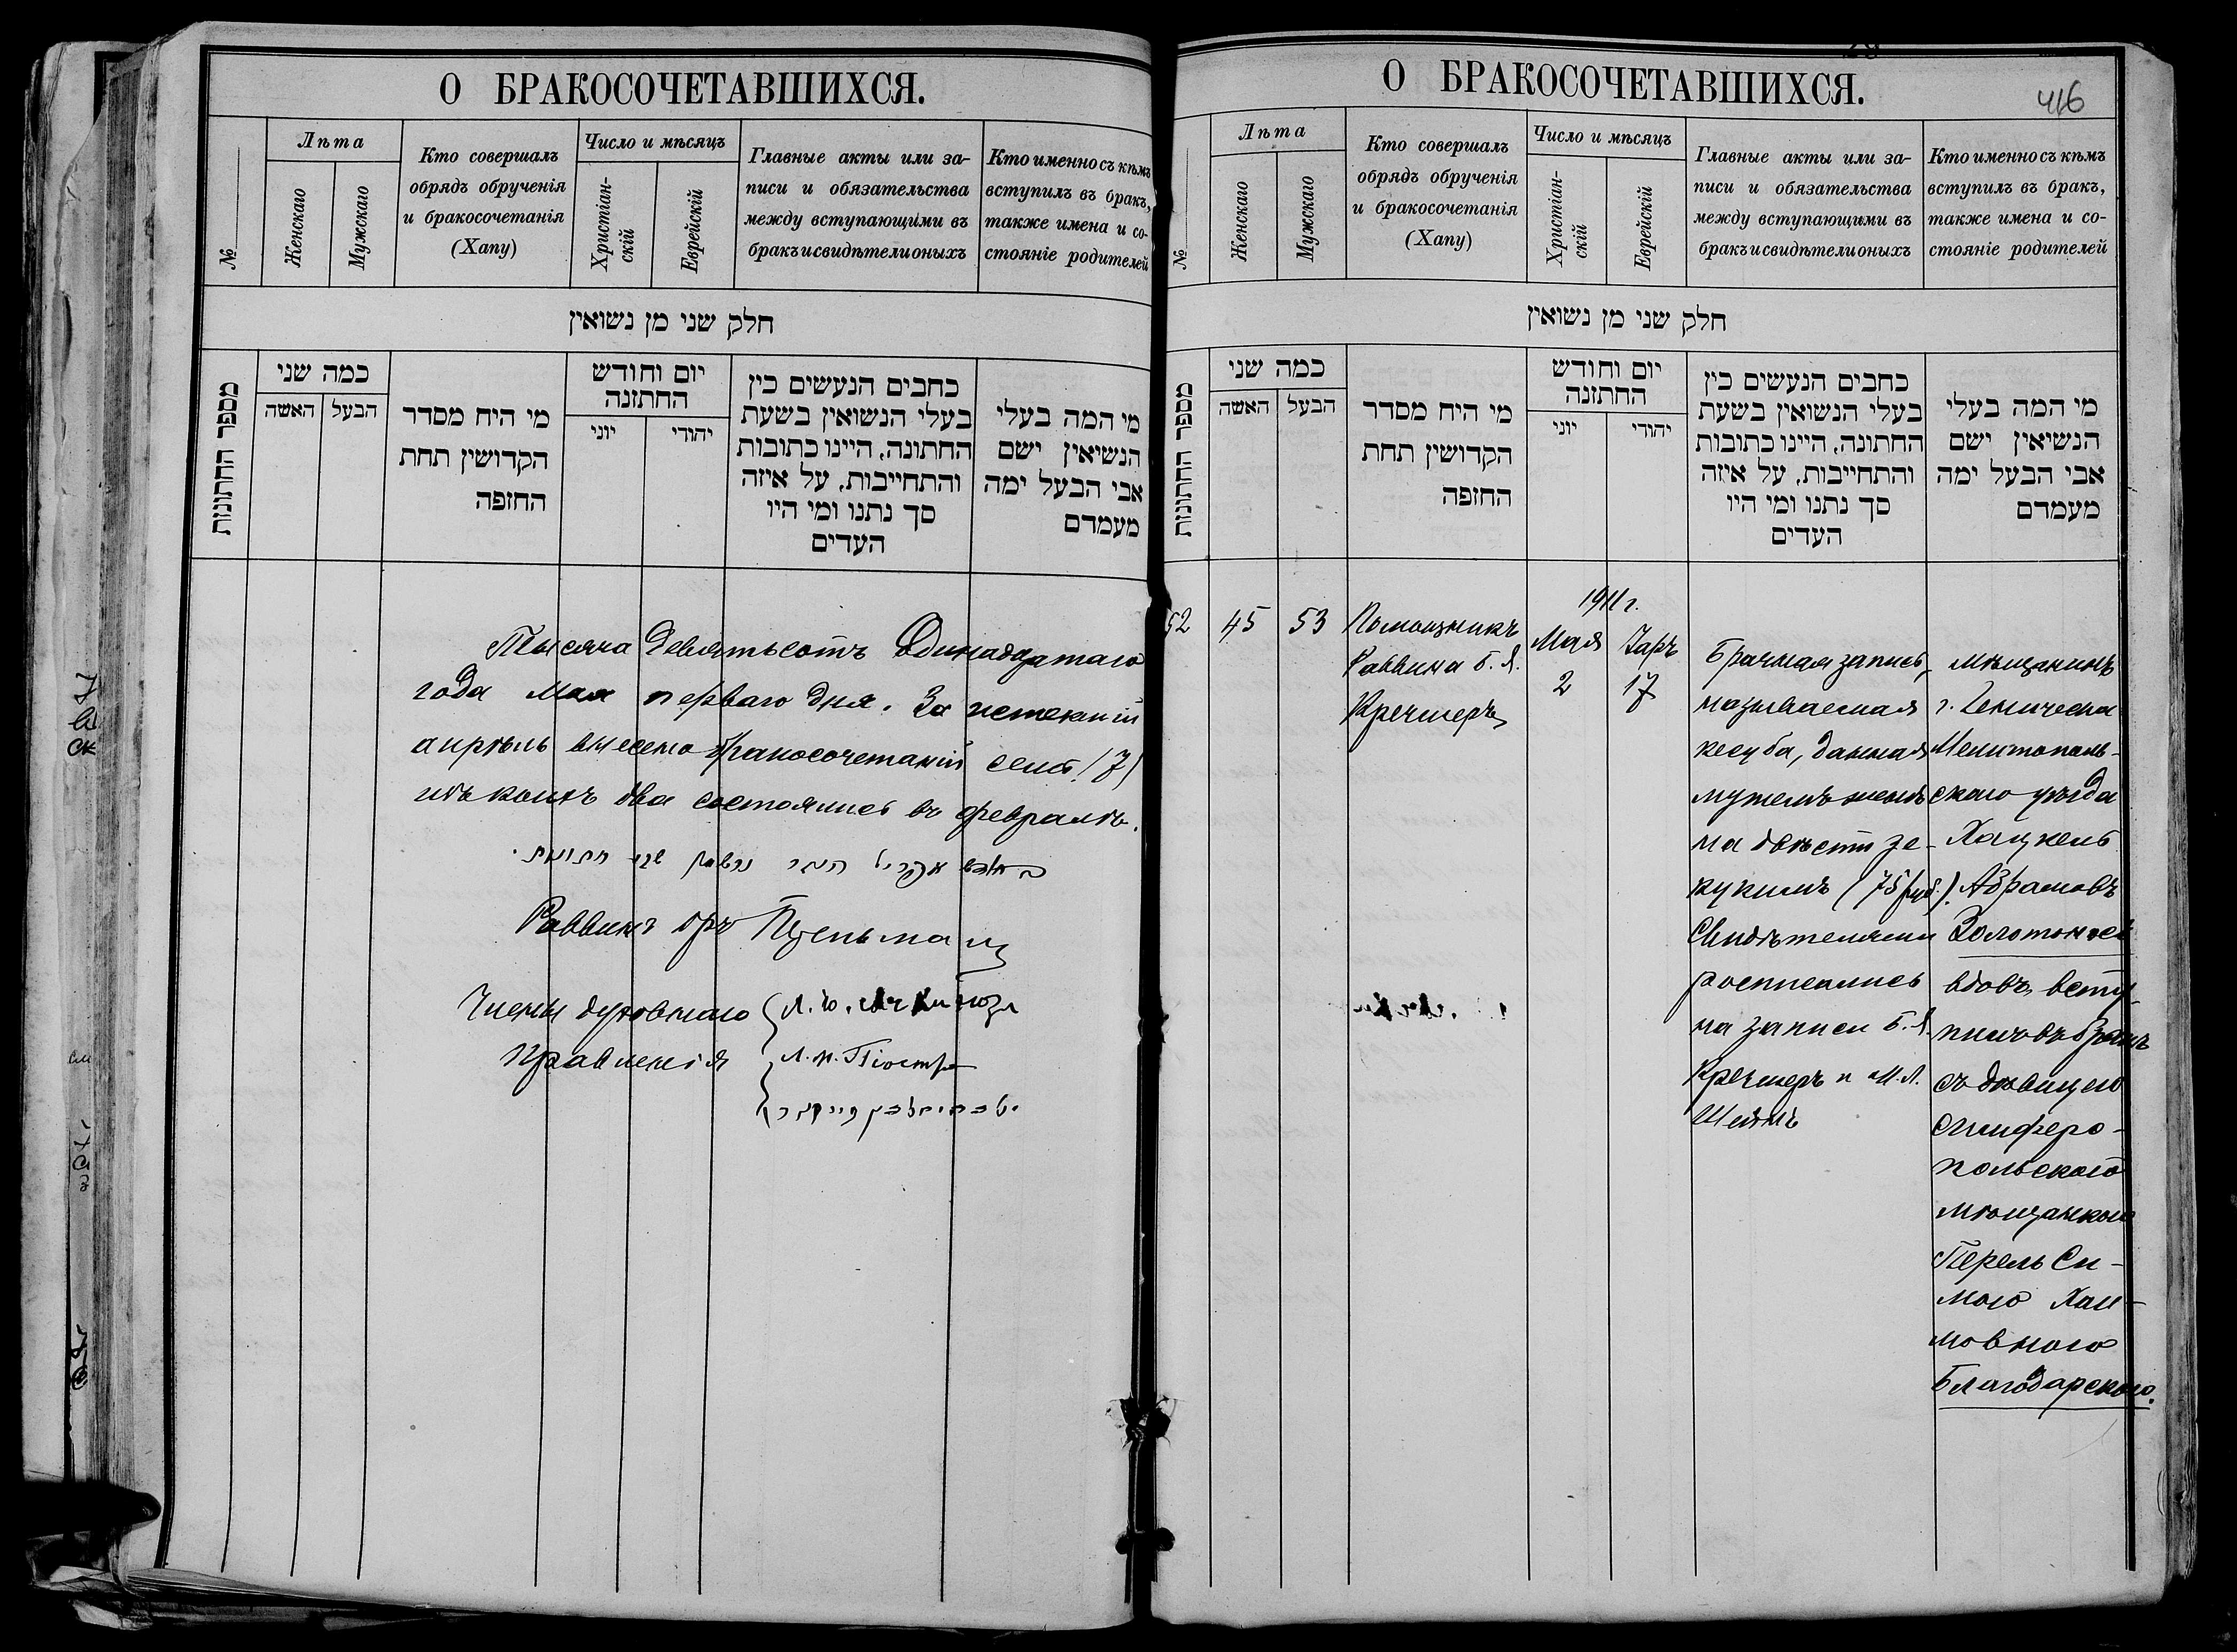 О БРАКОСОЧЕТАВШИХСЯ.
№
Лѣта
Женскаго
Мужскаго
Кто совершалъ
обрядъ обрученія
и бракосочетанія
(Хапу)
Число и мѣсяцъ
Христіан-
скій
Еврейскій
Главные акты или за-
писи и обязательства
между вступающими въ
бракъ и свидѣтели оныхъ
Кто именно съ кѣмъ
вступилъ въ бракъ,
также имена и со-
стояніе родителей
חלק שני מן נשואין
מספר החתונות
כמה שני
האשה
הבעל
מי היח מסדר
הקדושין תחת
החזפה
יום וחודש
החתזנה
יוני
יהודי
כחבים הנעשים כין
בעלי הנשואין בשעת
החתונה, היינו כתובות
והתחייבות, על איזה
סך נתנו ומי היו
העדים
מי המה בעלי
הנשיאין ישם
אבי הבעל ימה
מעמדם
Тысяча девятьсотъ Одинадцатаго
года Мая перваго дня. За истекшій
апрѣль внесено бракосочетаній семь (7)
изъ коихъ два состоялись въ февралѣ.
Раввинъ
Члены духовнаго
Правленія
О БРАКОСОЧЕТАВШИХСЯ.
416
№
Лѣта
Женскаго
Мужскаго
Кто совершалъ
обрядъ обрученія
и бракосочетанія
(Хапу)
Число и мѣсяцъ
Христіан-
скій
Еврейскій
Главные акты или за-
писи и обязательства
между вступающими въ
бракъ и свидѣтели оныхъ
Кто именно съ кѣмъ
вступилъ въ бракъ,
также имена и со-
стояніе родителей
חלק שני מן נשואין
מספר החתונות
כמה שני
האשה
הבעל
מי היח מסדר
הקדושין תחת
החזפה
יום וחודש
החתזנה
יוני
יהודי
כחבים הנעשים כין
בעלי הנשואין בשעת
החתונה, היינו כתובות
והתחייבות, על איזה
סך נתנו ומי היו
העדים
מי המה בעלי
הנשיאין ישם
אבי הבעל ימה
מעמדם
52
45
53
Помощникъ
Раввина Б. Я.
Кречмеръ
1911 г.
Мая
2
Іаръ
17
Брачная запись,
называемая
кесуба, данная
мужемъ женѣ
на двѣсти зе-
кукимъ (75 руб.).
Свидѣтелями
росписались
на записи Б. Я.
Кречмеръ и М. Л.
Шейнъ
мѣщанинъ
г. Геническа
Мелитополь-
скаго уѣзда
Хацкель
Абрамовъ
Золотонось
вдовъ, всту-
пилъ въ бракъ
съ дѣвицею
симферо-
польскою
мѣщанкою
Перель Си-
мою Хаи-
мовною
Благодарскою.